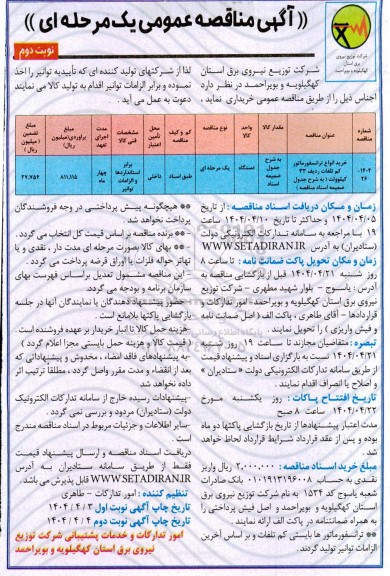 (( آگهی مناقصه عمومی یک مرحله ای ))
نوبت دوم
شرکت توزیع نیروی برق استان
کهگیلویه و بویراحمد
شرکت توزیع نیروی برق استان
کهگیلویه و بویراحمد در نظر دارد
اجناس ذیل را از طریق مناقصه عمومی خریداری نماید ،
لذا از شرکتهای تولید کننده ای که تأییدیه توانیر را اخذ
نموده و برابر الزامات توانیر اقدام به تولید کالا می نمایند
دعوت به عمل می آید .
شماره مناقصه
عنوان مناقصه
مقدار کالا
واحد کالا
نوع مناقصه
کم و کیف مناقصه
محل تأمین اعتبار
مشخصات فنی کالا
مدت اجرای تعهد
مبلغ برآوردی(میلیون ریال)
مبلغ تضمین (میلیون ریال)
۱۴۰۴-۲۶
خرید انواع ترانسفورماتور کم تلفات ردیف ۳۳ کیلوولت ( به شرح جدول ضمیمه اسناد مناقصه )
به شرح جدول ضمیمه اسناد
دستگاه
یک مرحله ای
طبق اسناد
داخلی
برابر استانداردها والزامات توانیر
چهار ماه
۸۱۱,۱۱۵
۲۷,۷۵۲
زمان و مکان دریافت اسناد مناقصه : از تاریخ
۱۴۰۴/۰۴/۰۵ و حداکثر تا تاریخ ۱۴۰۴/۰۴/۱۰ ساعت
۱۹ با مراجعه به سامانه تدارکات الکترونیکی دولت
(ستادیران) به آدرس WWW.SETADIRAN.IR
زمان و مکان تحویل پاکت ضمانت نامه : تا ساعت ۸
روز شنبه ۱۴۰۴/۰۴/۲۱ قبل از بازگشایی مناقصه به
آدرس : یاسوج – بلوار شهید مطهری – شرکت توزیع
نیروی برق استان کهگیلویه و بویراحمد – امور تدارکات و
قراردادها – آقای طاهری ، پاکت الف ( اصل ضمانت نامه
و فیش واریزی ) را تحویل نمایند .
تبصره : متقاضیان مجازند تا ساعت ۱۹ روز شنبه
۱۴۰۴/۰۴/۲۱ نسبت به بارگذاری اسناد و پیشنهاد قیمت
از طریق سامانه تدارکات الکترونیکی دولت « ستادیران »
و اصلاح یا انصراف اقدام نمایند .
تاریخ افتتاح پاکات : روز یکشنبه مورخ
۱۴۰۴/۰۴/۲۲ ساعت ۸ صبح
مدت اعتبار پیشنهادها از تاریخ بازگشایی پاکتها دو ماه
بوده و پس از عقد قرارداد شرایط قرارداد لحاظ خواهد
شد .
مبلغ خرید اسناد مناقصه : ۲,۰۰۰,۰۰۰ ریال واریز
نقدی به حساب ۰۱۰۱۹۱۳۱۹۶۰۰۸ بانک صادرات
شعبه یاسوج کد ۱۵۳۴ به نام شرکت توزیع نیروی برق
استان کهگیلویه و بویراحمد و اصل فیش پرداختی را
به همراه ضمانتنامه در پاکت الف ارائه نمایند .
** ترانسفورماتور ها بایستی کم تلفات و بر اساس آخرین
الزامات توانیر تولید گردند.
** هیچگونه پیش پرداختی در وجه فروشندگان
پرداخت نخواهد شد
** برنده مناقصه بر اساس قیمت کل انتخاب می گردد .
** بهای کالا بصورت مرحله ای مدت دار ، نقدی و یا
تهاتر حواله فلزات یا اوراق قرضه پرداخت می گردد .
- این مناقصه مشمول تعدیل براساس فهرست بهای
سازمان برنامه و بودجه می گردد.
- حضور پیشنهاد دهندگان یا نمایندگان آنها در جلسه
بازگشایی پاکتها بلامانع است .
-هزینه حمل کالا تا انبار خریدار بر عهده فروشنده است .
( قیمت کالا و هزینه حمل بایستی مجزا اعلام گردد )
-به پیشنهادهای فاقد امضاء ، مخدوش و پیشنهاداتی که
بعد از انقضاء و مدت مقرر واصل گردد ، مطلقا ترتیب اثر
داده نخواهد شد
-پیشنهادات رسیده خارج از سامانه تدارکات الکترونیک
دولت (ستادیران) مردود و بررسی نمی گردد .
-سایر اطلاعات و جزئیات مربوط در اسناد مناقصه مندرج
است.
دریافت اسناد مناقصه و ارسال پیشنهاد قیمت
فقط از طریق سامانه ستادیران به آدرس
WWW.SETADIRAN.IR قابل پذیرش می باشد
تنظیم کننده : امور تدارکات - طاهری
تاریخ چاپ آگهی نوبت اول ۱۴۰۴/۴/۳
تاریخ چاپ آگهی نوبت دوم ۱۴۰۴/۴/۴
امور تدارکات و خدمات پشتیبانی شرکت توزیع
نیروی برق استان کهگیلویه و بویراحمد